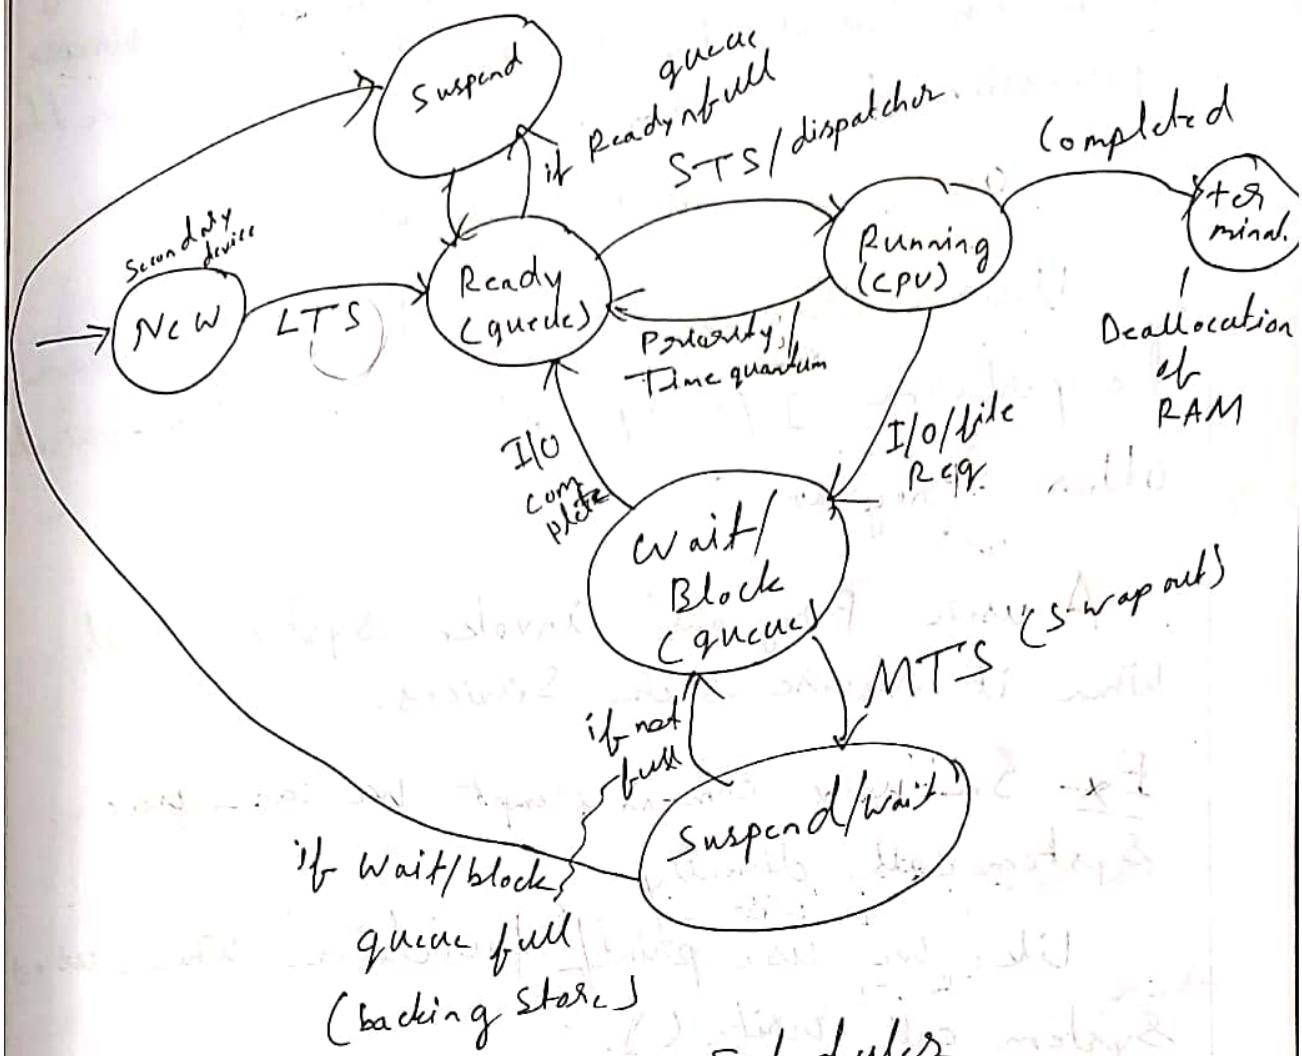 Suspend
queue
if Ready full
STS/dispatcher.
Completed
ter
minat.
Secondary
device
New
LTS
Ready
(queue)
Running
(CPU)
Priority/
Time quantum
Deallocation
of
RAM
I/O
com
plete
I/O/file
Req.
Wait/
Block
(queue)
MTS (swap out)
if not
full
Suspend/wait
if wait/block
queue full
(backing store)